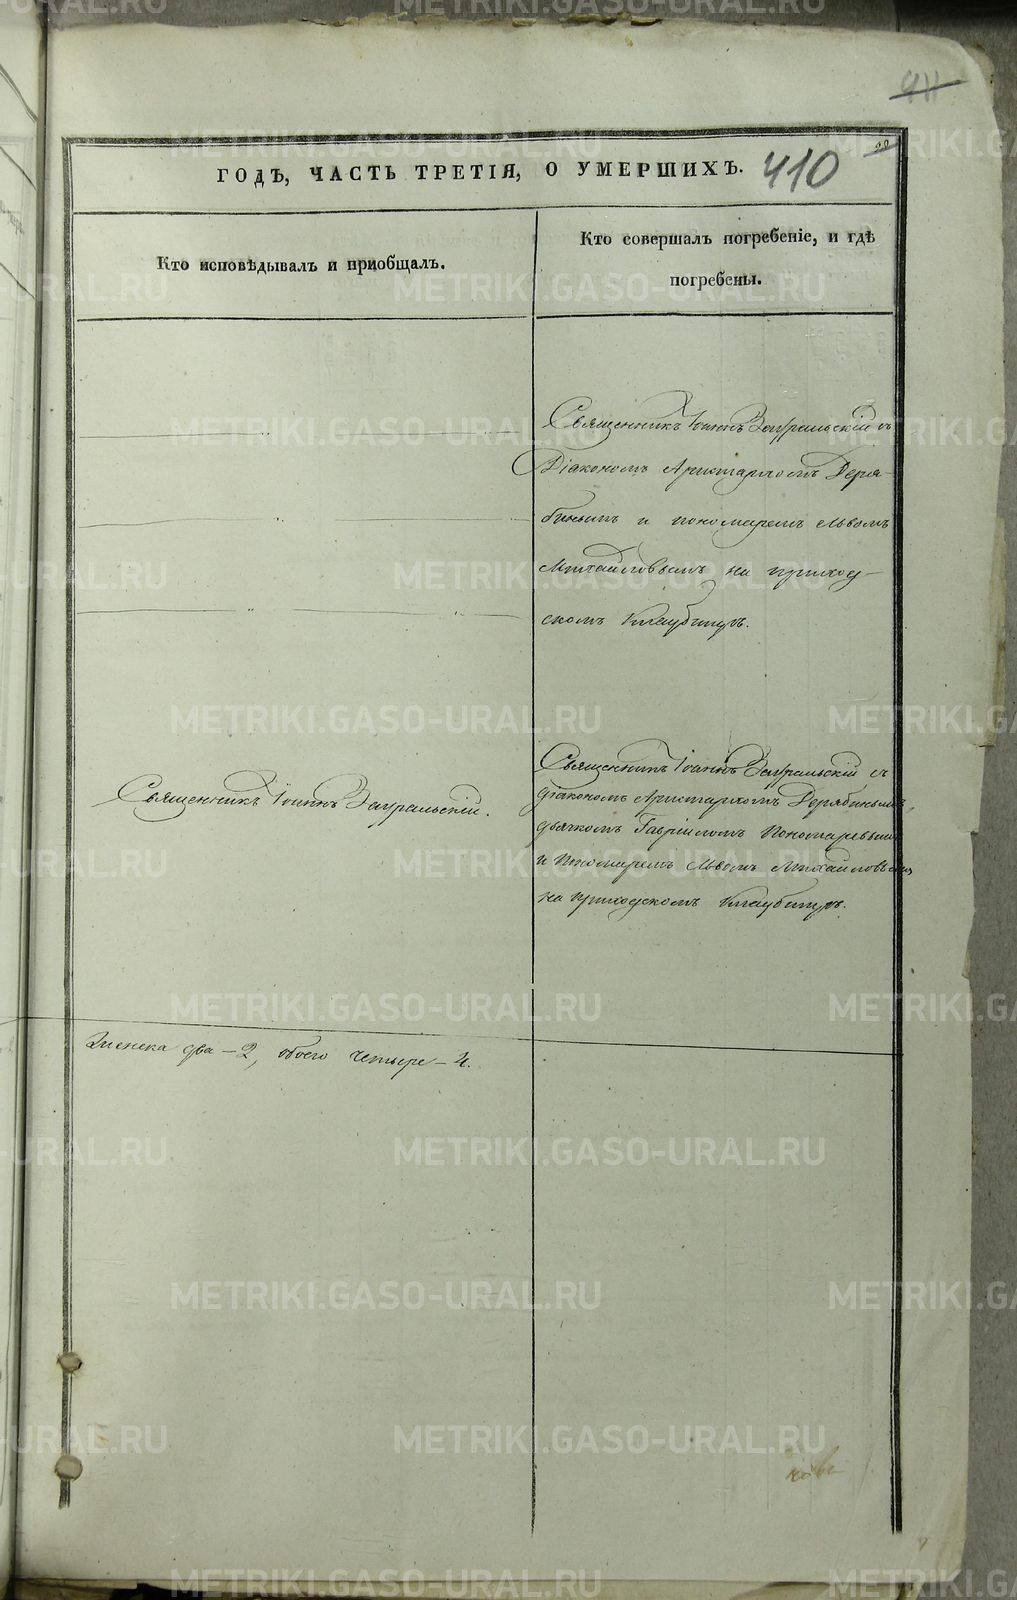 411
68
ГОДЪ, ЧАСТЬ ТРЕТІЯ, О УМЕРШИХЪ.
410
Кто исповѣдывалъ и пріобщалъ.
Кто совершалъ погребеніе, и гдѣ
погребены.
Священникъ Іоаннъ Зауральскій съ
Діакономъ Аристархомъ Деря-
бинымъ и пономаремъ Львомъ
Михайловымъ на приход-
скомъ кладбищѣ.
Священникъ Іоаннъ Зауральскій.
Священникъ Іоаннъ Зауральскій съ
діакономъ Аристархомъ Дерябинымъ,
дьячкомъ Гавріиломъ Пономаревымъ
и Пономаремъ Львомъ Михайловымъ
на приходскомъ кладбищѣ.
женска два – 2, обоего четыре – 4.
METRIKI.GASO-URAL.RU